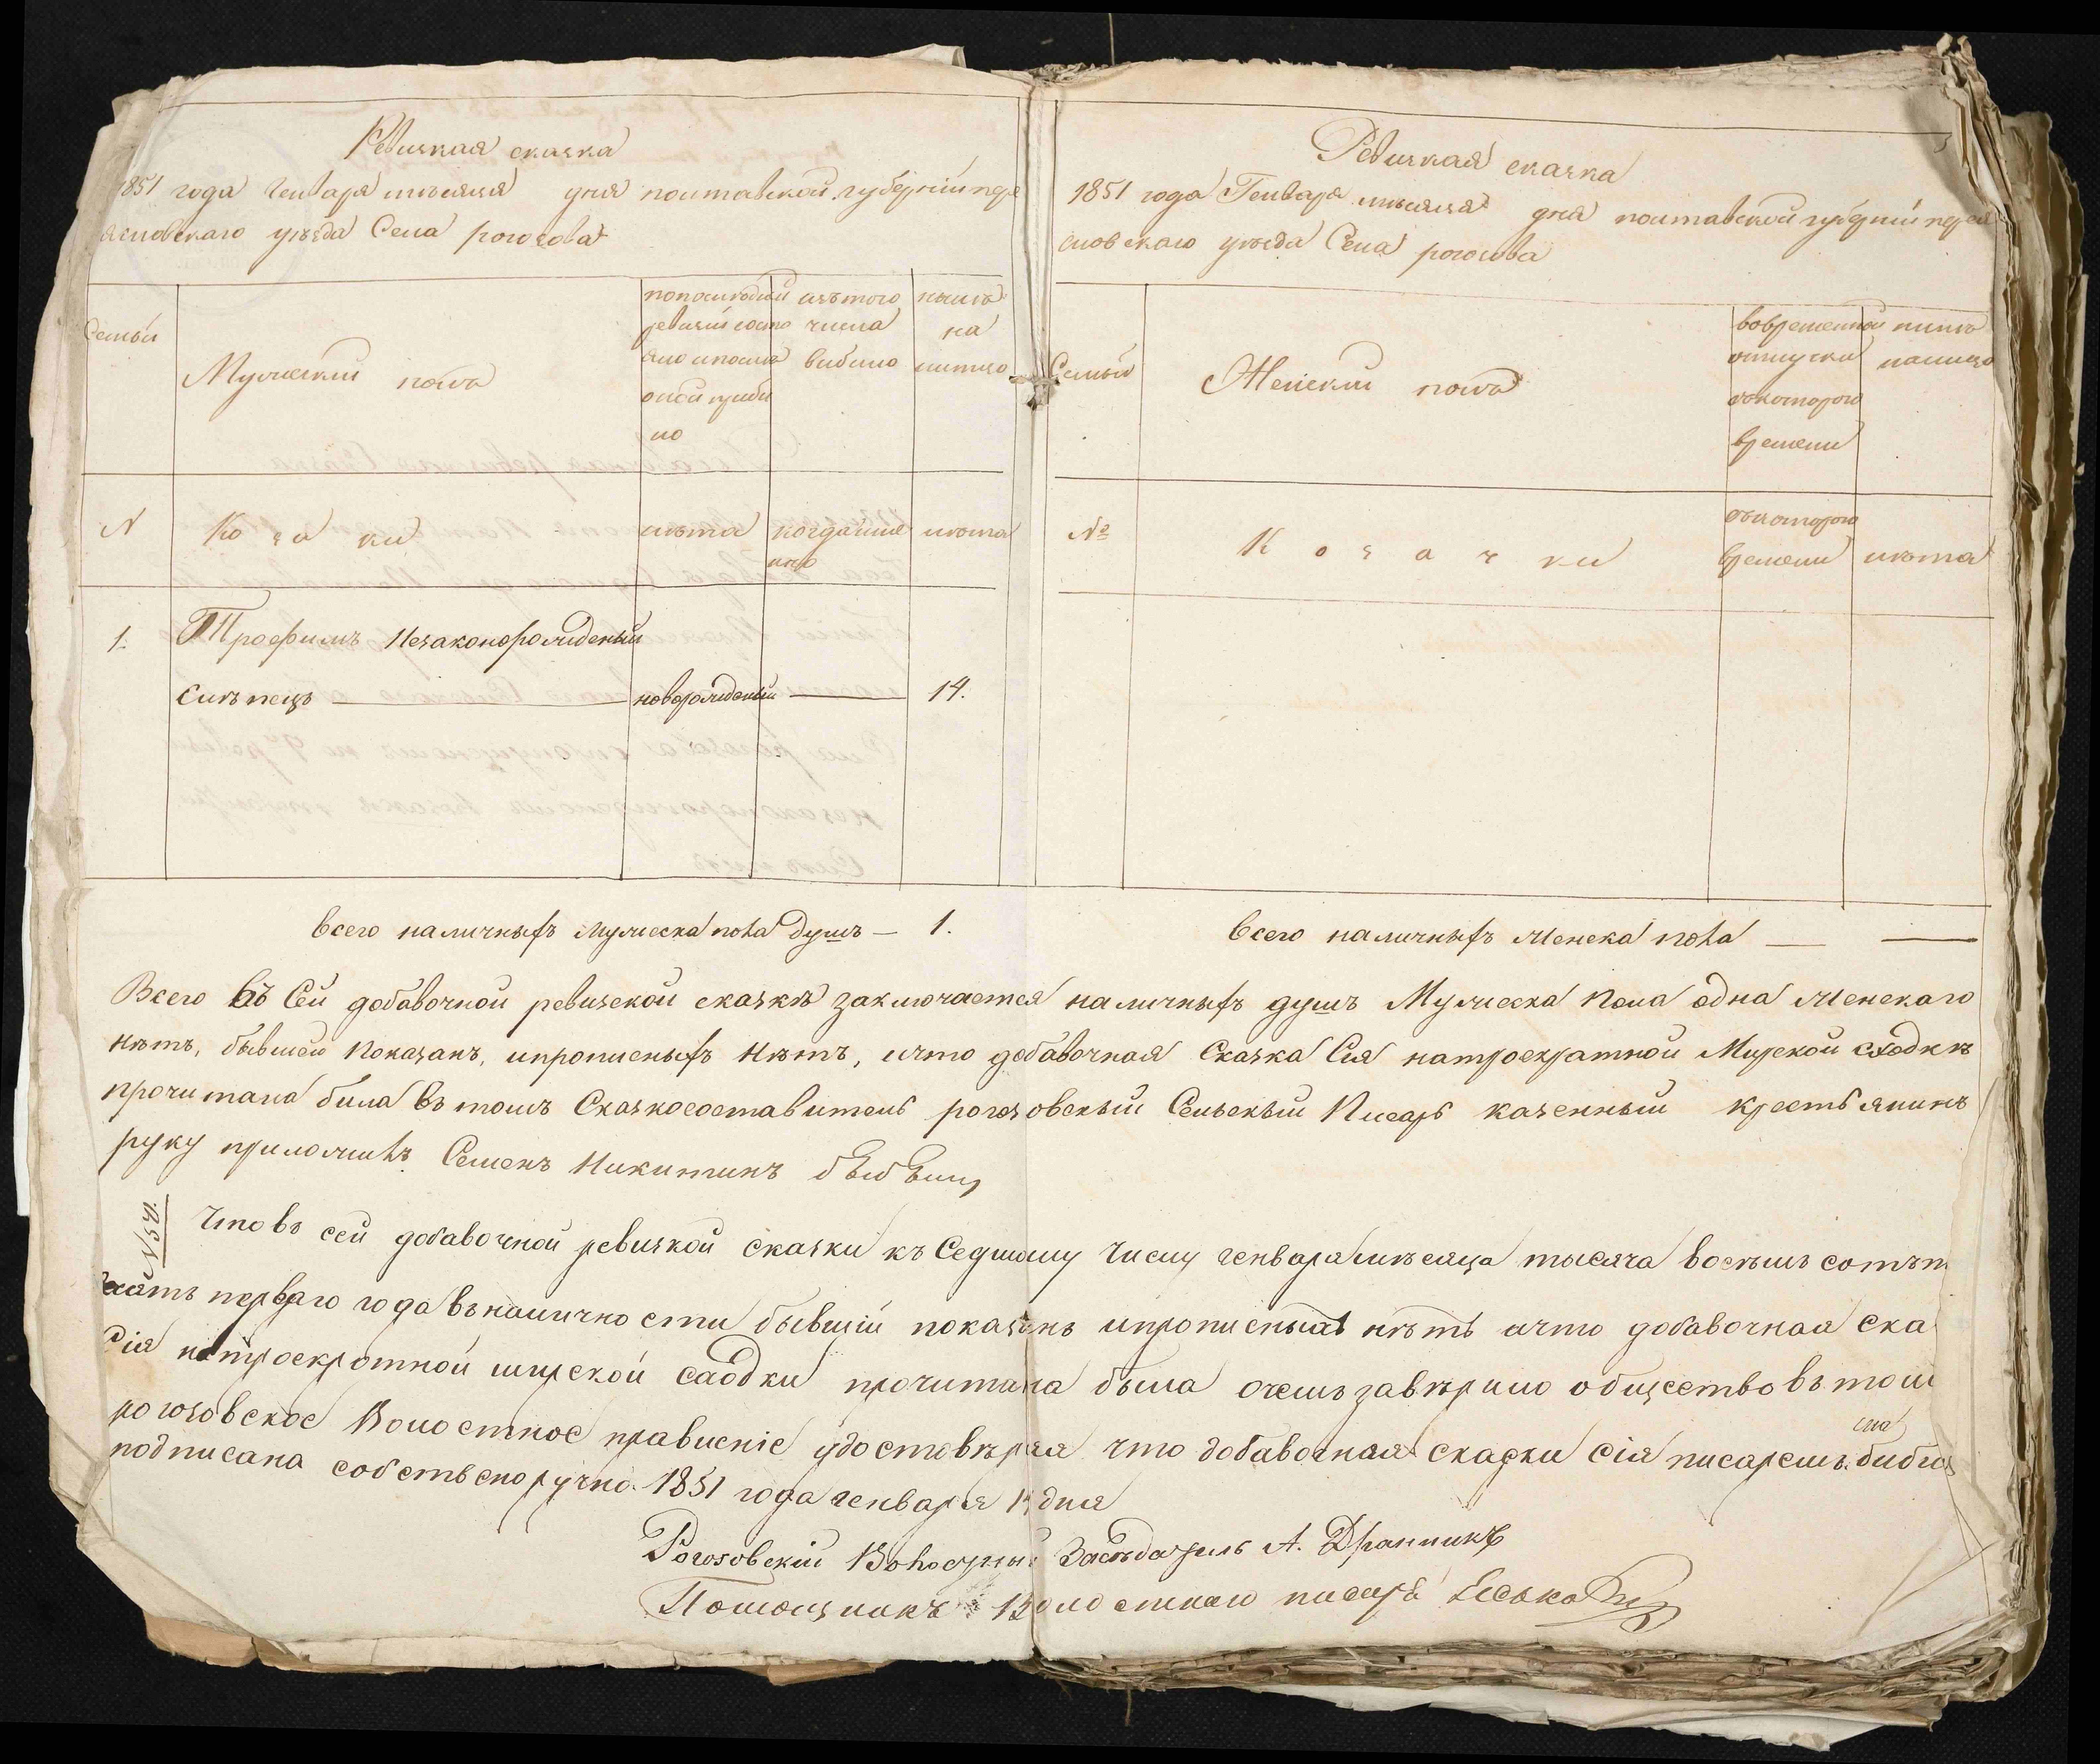 Ревизкая сказка
1851 года Генваря мѣсяца дня полтавской губернии пере
яславскаго уѣзда Села рогозова
Семьи
Мужеский полъ
попоследней
ревизии состо
яло и после
оной прибы
ло
изъ того
числа
выбыло
ныне
на
лицо
N
Козаки
лѣта
когда именно
лѣта
1. Трофимъ Незаконорожденый
Слѣпецъ — новорожденый — 14.
всего наличныхъ мужеска пола душъ — 1.
Ревизкая сказка
1851 года Генваря мѣсяца дня полтавской губернии перея
словскаго уѣзда Села рогозова
Семьи
Женский полъ
вовременной
отлучки
скоторого
времени
ныне
налицо
№
Козачки
скоторого
времени
лѣта
всего наличныхъ женска пола —
Всего въ Сей добавочной ревизской сказкѣ заключается наличныхъ душъ Мужеска Пола одна женскаго
нѣтъ, бывшей показанъ, ипрописныхъ нѣтъ, ичто добавочная Сказка Сия натроекратной Мирской сходкѣ
прочитана била вътомъ Сказкосоставитель рогозовский Сельский Писарь казенный крестьянинъ
руку приложилъ Семенъ Никитинъ
N 54.
Что въ сей добавочной ревизкой сказки къ Седмому числу генваря мѣсяца тысяча восѣмъ сотъ п
десятъ перваго года въналичности бывший показанъ ипрописныхъ нѣтъ ичто добавочная Ска
Сія натроекротной мирской сходки прочитана была очемъ завѣрило общество вътом
рогозовское Волостное правленіе удостовѣряя что добавочная сказки сія писаремъ
подписана собственоручно. 1851 года генваря дня
Рогозовскій Волостный Засѣдатель А. Дранникъ
Помощникъ Волостнаго писаря Лесько